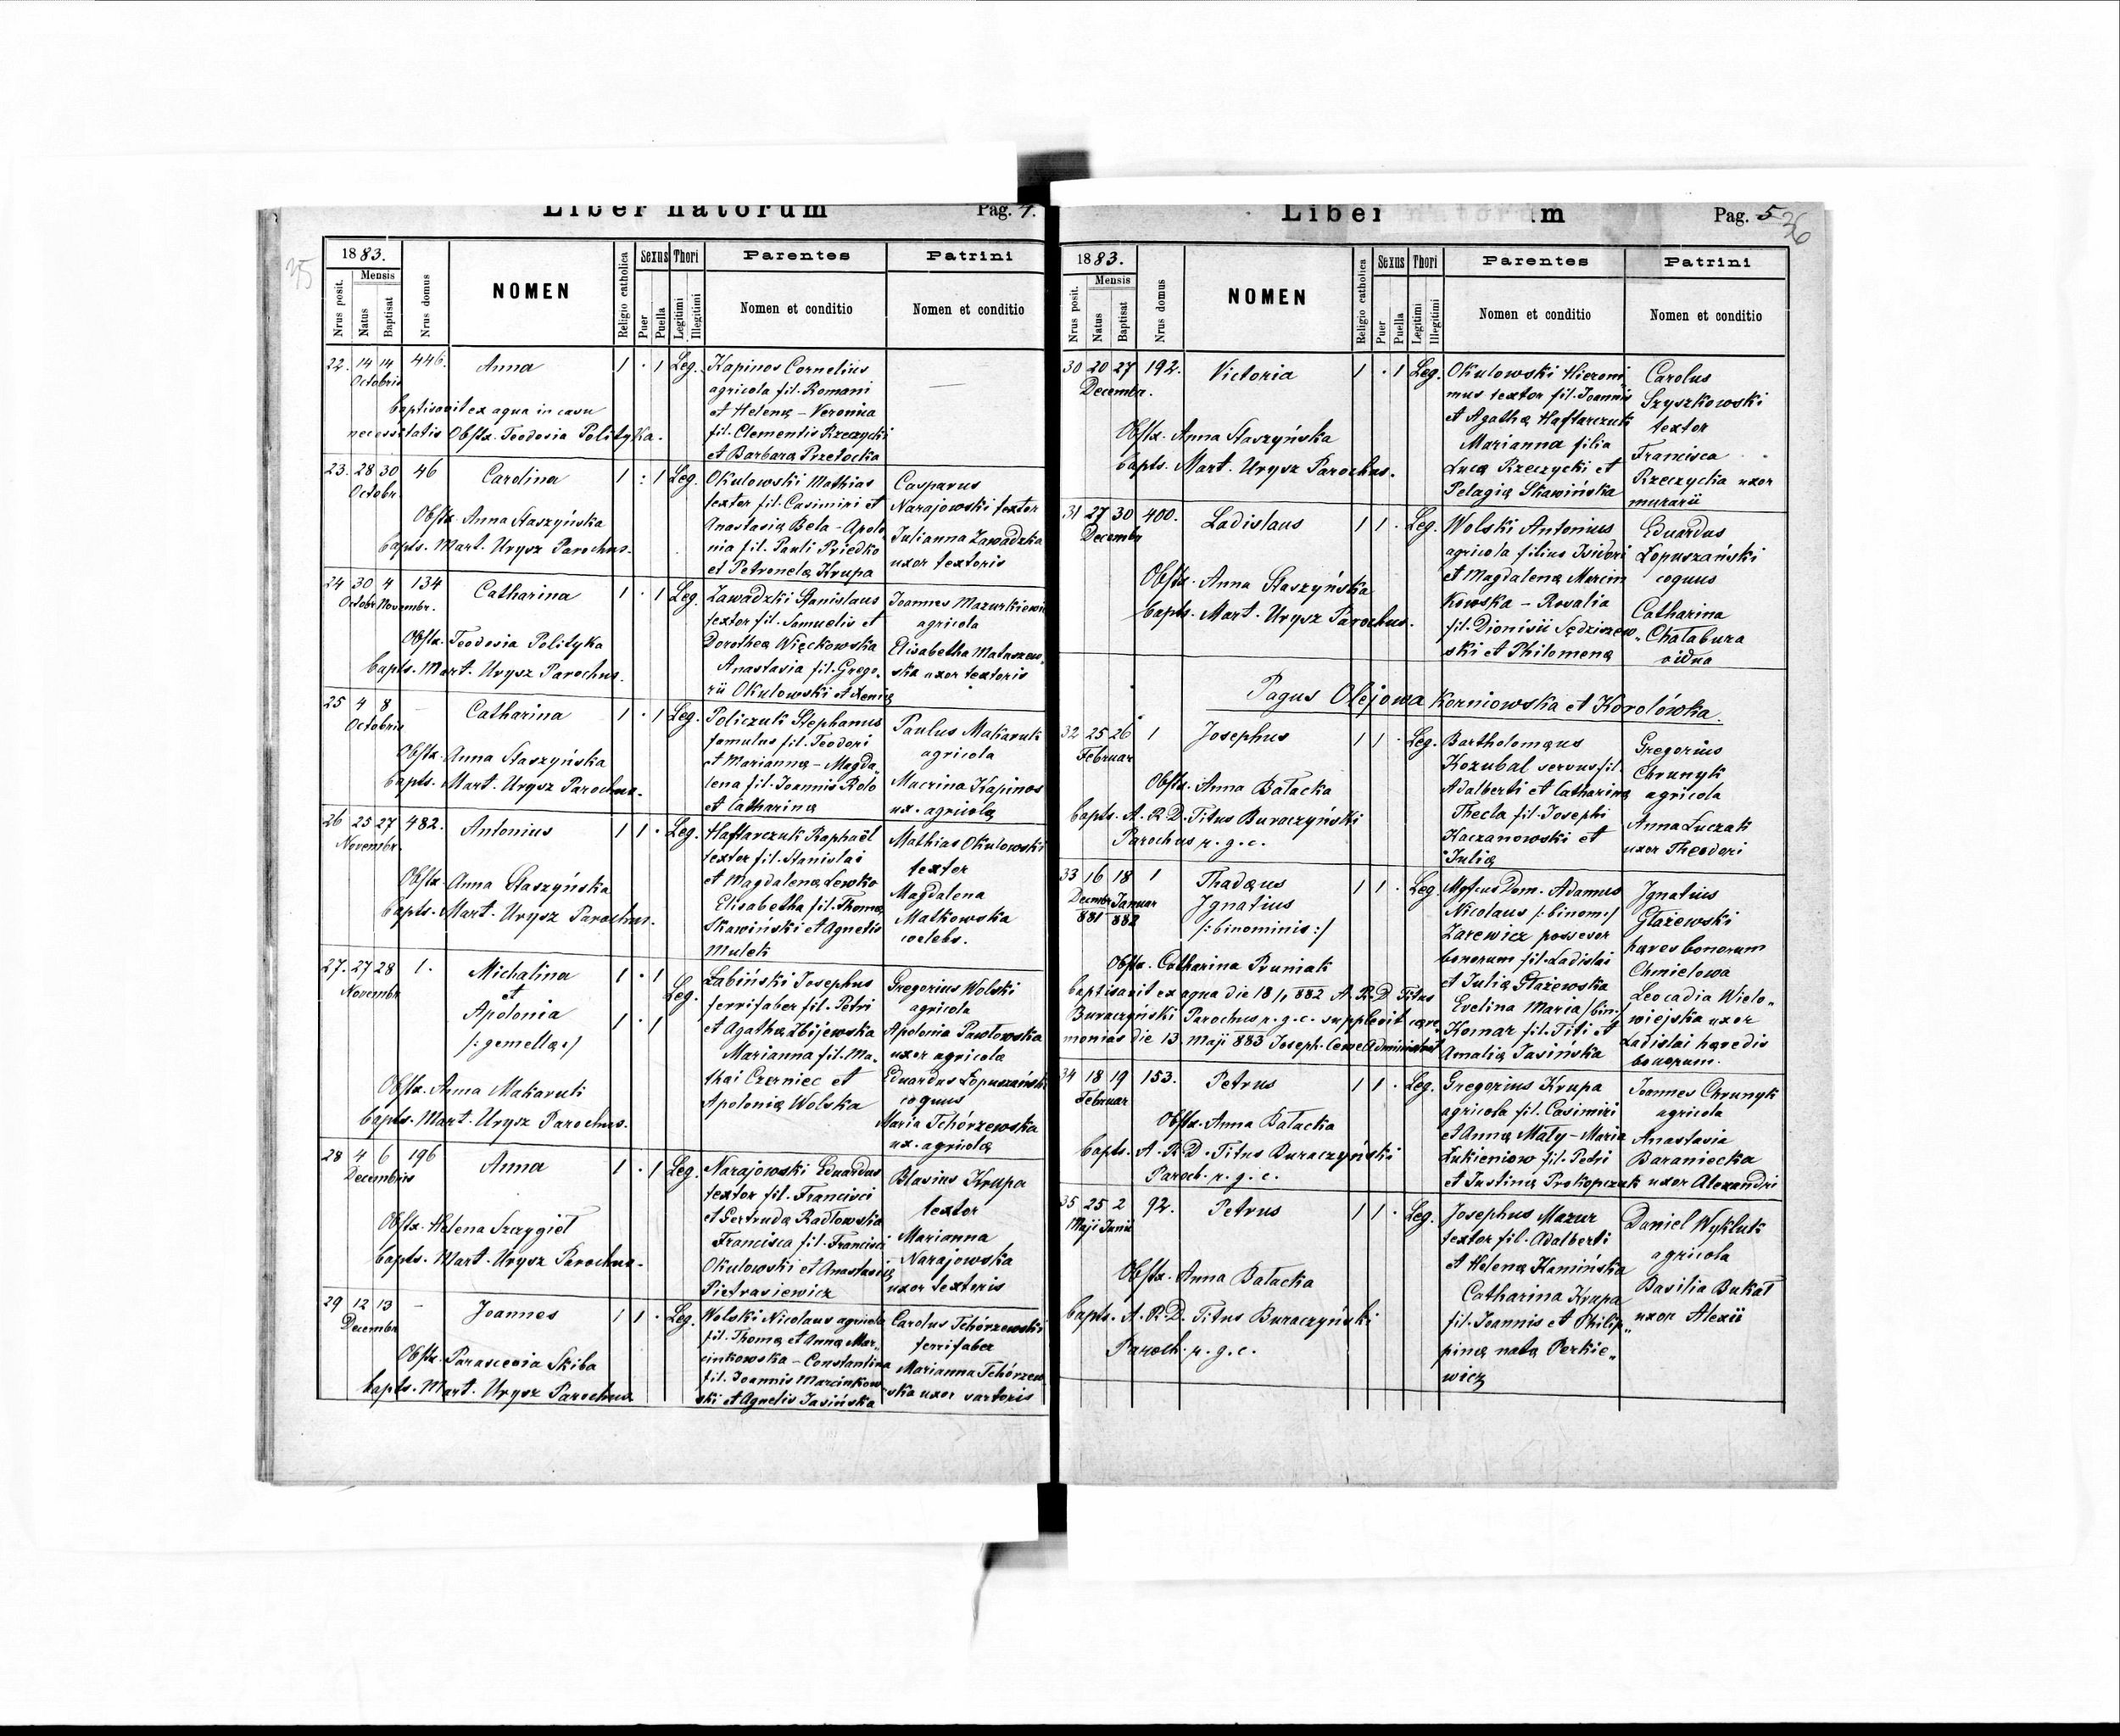 Liber natorum Pag. 4.
35
1883.
Nrus posit.
Mensis
Natus
Baptisat
Nrus domus
NOMEN
Religio catholica
Sexus
Puer
Puella
Thori
Legitimi
Illegitimi
Parentes
Nomen et conditio
Patrini
Nomen et conditio
22. 14 14 446. Anna 1 · 1 Leg.
Octobris
baptisavit ex aqua in casu
necessitatis Obstx. Teodosia Polityka.
Kapinos Cornelius
agricola fil. Romani
et Helenę – Veronica
fil. Clementis Rzeczycki
et Barbarę Przetocka
—
23. 28 30 46 Carolina 1 : 1 Leg.
Octobr
Obstx. Anna Staszyńska
bapts. Mart. Urysz Parochus.
Okulowski Mathias
textor fil. Casimiri et
Anastasię Bela – Apolo-
nia fil. Pauli Priedko
et Petronelę Krupa
Casparus
Narajowski textor
Julianna Zawadzka
uxor textoris
24 30 4 134 Catharina 1 · 1 Leg.
Octobr Novembr.
Obstx. Teodosia Polityka
bapts. Mart. Urysz Parochus.
Zawadzki Stanislaus
textor fil. Samuelis et
Dorotheę Więckowska
Anastasia fil. Grego-
rii Okulowski et Xenię
Joannes Mazurkiewicz
agricola
Elisabetha Mataszew-
ska uxor textoris
25 4 8 – Catharina 1 · 1 Leg.
Octobris
Obstx. Anna Staszyńska
bapts. Mart. Urysz Parochus.
Policzuk Stephanus
famulus fil. Teodori
et Mariannę – Magda-
lena fil. Joannis Rolo
et Catharinę
Paulus Makaruk
agricola
Macrina Kapinos
ux. agricolę
26 25 27 482. Antonius 1 1 · Leg.
Novembr.
Obstx. Anna Staszyńska
bapts. Mart. Urysz Parochus.
Haftarczuk Raphaël
textor fil. Stanislai
et Magdalenę Lewko
Elisabetha fil. Thomę
Skawiński et Agnetis
Mulek
Mathias Okulowski
textor
Magdalena
Matkowska
coelebs.
27. 27 28 1. Michalina 1 · 1
Novembr
et
Apolonia 1 · 1 Leg.
/: gemellę :/
Obstx. Anna Makaruk
bapts. Mart. Urysz Parochus.
Łabiński Josephus
ferrifaber fil. Petri
et Agathę Zbijewska
Marianna fil. Ma-
thai Czerniec et
Apolonię Wolska
Gregorius Wolski
agricola
Apolonia Pawłowska
uxor agricola
Eduardus Łopuszański
coquus
Maria Tchórzewska
ux. agricolę
28 4 6 196 Anna 1 · 1 Leg.
Decembris
Obstx. Helena Szczygieł
bapts. Mart. Urysz Parochus.
Narajowski Eduardus
textor fil. Francisci
et Gertrudę Radłowska
Francisca fil. Francisci
Okulowski et Anastasię
Pietrasiewicz
Blasius Krupa
textor
Marianna
Narajowska
uxor textoris
29 12 13 – Joannes 1 1 · Leg.
Decembr
Obstx. Parascevia Skiba
bapts. Mart. Urysz Parochus
Wolski Nicolaus agricola
fil. Thomę et Annę Mar-
cinkowska – Constantina
fil. Joannis Marcinkow-
ski et Agnetis Jasińska
Carolus Tchórzewski
ferrifaber
Marianna Tchórzew-
ska uxor sartoris
Liber natorum Pag. 5
36
1883.
Nrus posit.
Mensis
Natus
Baptisat
Nrus domus
NOMEN
Religio catholica
Sexus
Puer
Puella
Thori
Legitimi
Illegitimi
Parentes
Nomen et conditio
Patrini
Nomen et conditio
30 20 27 192. Victoria 1 · 1 Leg.
Decembr.
Obstx. Anna Staszyńska
bapts. Mart. Urysz Parochus.
Okulowski Hieroni-
mus textor fil. Joannis
et Agathę Haftarczuk
Marianna filia
Lucę Rzeczycki et
Pelagię Skawińska
Carolus
Szyszkowski
textor
Francisca
Rzeczycka uxor
murarii
31 27 30 400. Ladislaus 1 1 · Leg.
Decembr
Obstx. Anna Staszyńska
bapts. Mart. Urysz Parochus.
Wolski Antonius
agricola filius Isidori
et Magdalenę Marcin
kowska – Rosalia
fil. Dionisii Sędziszew-
ski et Philomenę
Eduardus
Łopuszański
coquus
Catharina
Chałabura
vidua
Pagus Olejowa Korniowska et Korolówka.
32 25 26 1 Josephus 1 1 · Leg.
Februar
Obstx. Anna Bałacka
bapts. A. R. D. Titus Buraczyński
Parochus r. g. c.
Bartholomęus
Kozubal servus fil.
Adalberti et Catharinę
Thecla fil. Josephi
Kaczanowski et
Julię
Gregorius
Chrunyk
agricola
Anna Łuczak
uxor Theodori
33 16 18 1 Thadęus 1 1 · Leg.
Decembr Januar
881 882
Ignatius
/: binominis :/
Obstx. Catharina Pruniak
baptisavit ex aqua die 18/1 882 A. R. D Titus
Buraczyński Parochus r. g. c. supplevit cęre-
monias die 13. Maji 883 Joseph. Administrat
Mgfcus Dom. Adamus
Nicolaus /: binom :/
Zarewicz possesor
bonorum fil. Ladislai
et Julię Głażewska
Evelina Maria /bin./
Komar fil. Titi et
Amalię Jasińska
Ignatius
Głażewski
hęres bonorum
Chmielowa
Leocadia Wielo-
wiejska uxor
Ladislai hęredis
bonorum.
34 18 19 153. Petrus 1 1 · Leg.
Februar
Obstx. Anna Bałacka
bapts. A. R. D. Titus Buraczyński
Paroch. r. g. c.
Gregorius Krupa
agricola fil. Casimiri
et Annę Mały – Maria
Łukieniow fil. Petri
et Justinę Prokopczuk
Joannes Chrunyk
agricola
Anastasia
Baraniecka
uxor Alexandri
35 25 2 92. Petrus 1 1 · Leg.
Maji Junii
Obstx. Anna Bałacka
bapts. A. R. D. Titus Buraczyński
Paroch. r. g. c.
Josephus Mazur
textor fil. Adalberti
et Helenę Kamińska
Catharina Krupa
fil. Joannis et Philip-
pinę natę Perkie-
wicz
Daniel Wykluk
agricola
Basilia Bukat
uxor Alexii